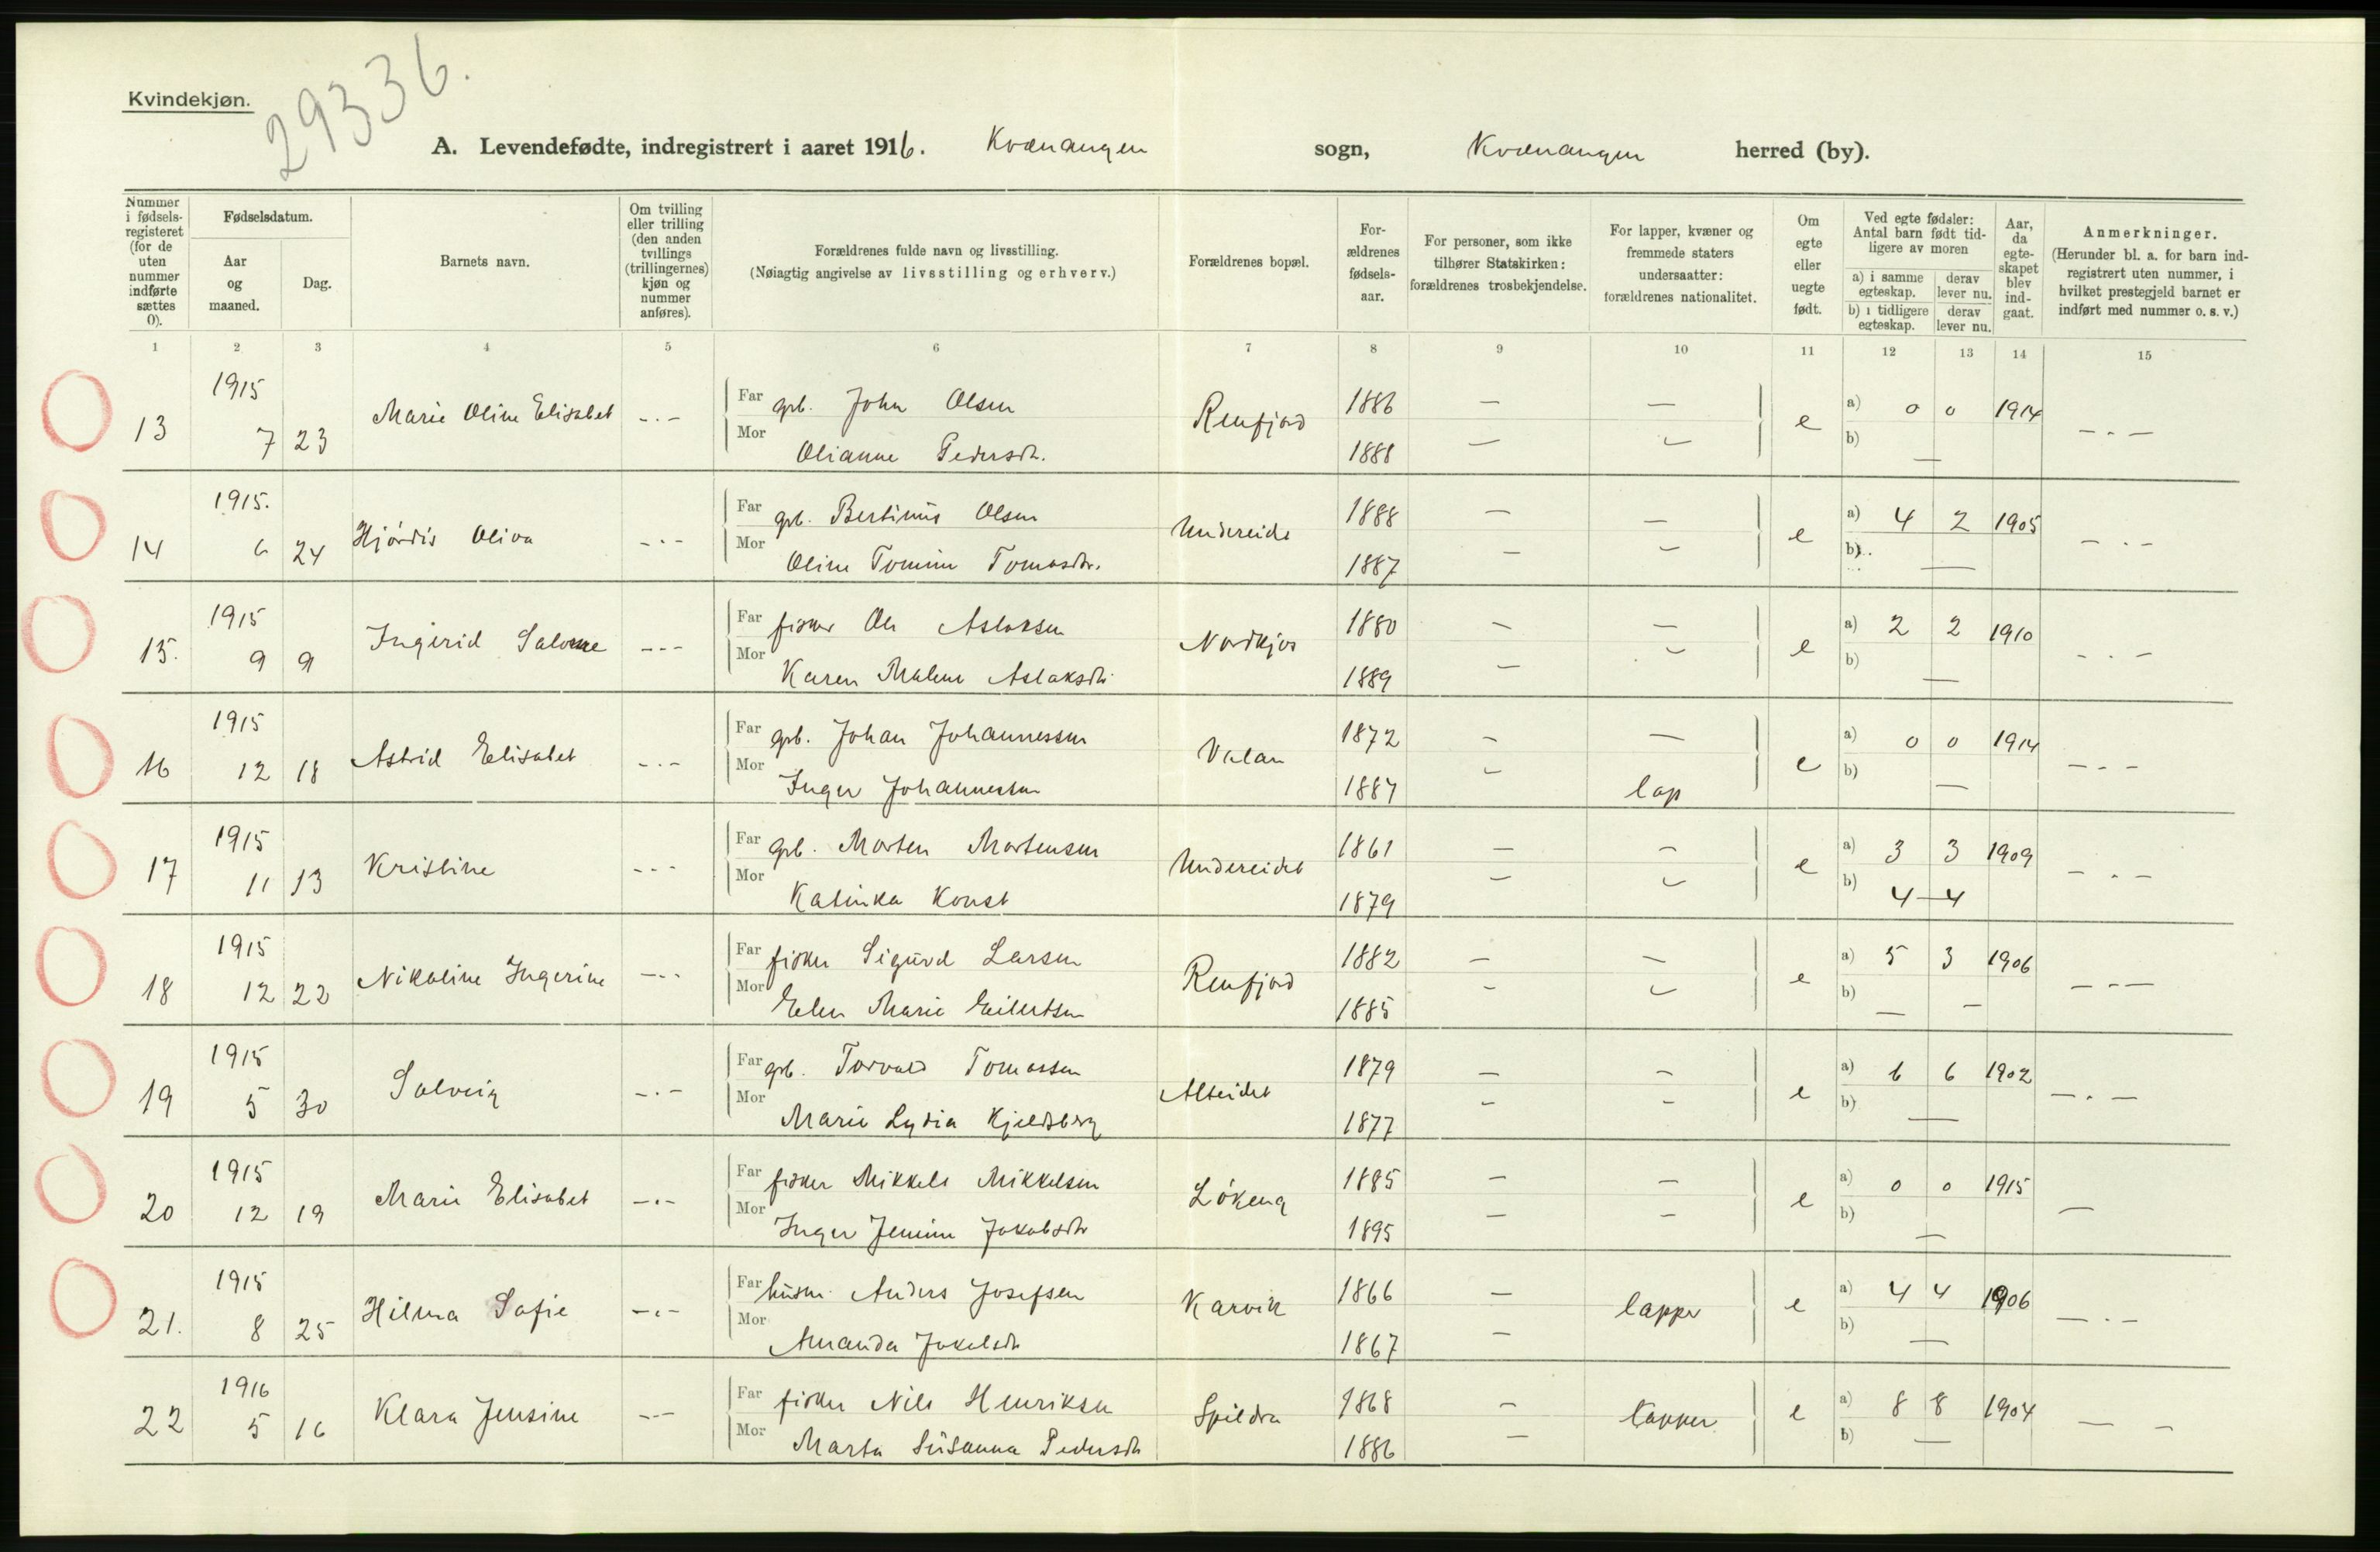 Kvindekjøn.
29336.
A. Levendefødte, indregistrert i aaret 1916. Kvænangen sogn, Kvænangen herred (by).
Nummer i fødsels-registeret (for de uten nummer indførte sættes 0).
Fødselsdatum.
Aar og maaned.
Dag.
Barnets navn.
Om tvilling eller trilling (den anden tvillings (trillingernes) kjøn og nummer anføres).
Forældrenes fulde navn og livsstilling.
(Nøiagtig angivelse av livsstilling og erhverv.)
Forældrenes bopæl.
For-ældrenes fødsels-aar.
For personer, som ikke tilhører Statskirken: forældrenes trosbekjendelse.
For lapper, kvæner og fremmede staters undersaatter: forældrenes nationalitet.
Om egte eller uegte født.
Ved egte fødsler: Antal barn født tid-ligere av moren
a) i samme egteskap. derav lever nu.
b) i tidligere egteskap. derav lever nu.
Aar, da egte-skapet blev ind-gaat.
Anmerkninger.
(Herunder bl. a. for barn ind-registrert uten nummer, i hvilket prestegjeld barnet er indført med nummer o. s. v.)
1 2 3 4 5 6 7 8 9 10 11 12 13 14 15
13 1915 7 23 Marie Oline Elisabet -.- Far grb. John Olsen Renfjord 1886 — — e a) 0 0 1914 -.-
Mor Olianne Pedersdtr. 1888 — — b) —
14 1915. 6 24 Hjórdis Oliva -.- Far grb. Bertinus Olsen Undereide 1888 — — e a) 4 2 1905 -.-
Mor Oline Tomine Tomasdtr. 1887 — — b) —
15. 1915 9 9 Ingerid Salome --- Far fisker Ole Aslaksen Nordkjos 1880 — — e a) 2 2 1910 -.-
Mor Karen Malene Aslaksdtr 1889 — — b) —
16 1915 12 18 Astrid Elisabet -.- Far grb. Johan Johannessen Valan 1872 — — e a) 0 0 1914 -.-
Mor Inger Johannessen 1887 — lap b) —
17 1915 11 13 Kristine --- Far grb. Morten Mortensen Undereidet 1861 — — e a) 3 3 1909 -.-
Mor Katinka Konst 1879 — — b) 4 — 4
18 1915 12 22 Nikoline Ingerine --- Far fisker Sigurd Larsen Renfjord 1882 — — e a) 5 3 1906 -.-
Mor Elen Marie Eilertsen 1885 — — b) — —
19 1915 5 30 Solveig -.- Far grb. Torvald Tomassen Alteidet 1879 — — e a) 6 6 1902 -.-
Mor Marie Lydia Kjeldsberg 1877 — — b) —
20 1915 12 19 Marie Elisabet -.- Far fisker Mikkel Mikkelsen Lókeng 1885 — — e a) 0 0 1915 —
Mor Inger Jenine Jakobsdtr 1895 — — b) —
21. 1915 8 25 Hilma Sofie -.- Far husm. Anders Josefsen Karvik 1866 — lapper e a) 4 4 1906 -.-
Mor Amanda 1867 — b) —
22 1916 5 16 Klara Jensine --- Far fisker Nils Henriksen Spildra 1868 — lapper e a) 8 8 1904 — -
Mor Marta Susanna Pedersdtr 1886 — b) —